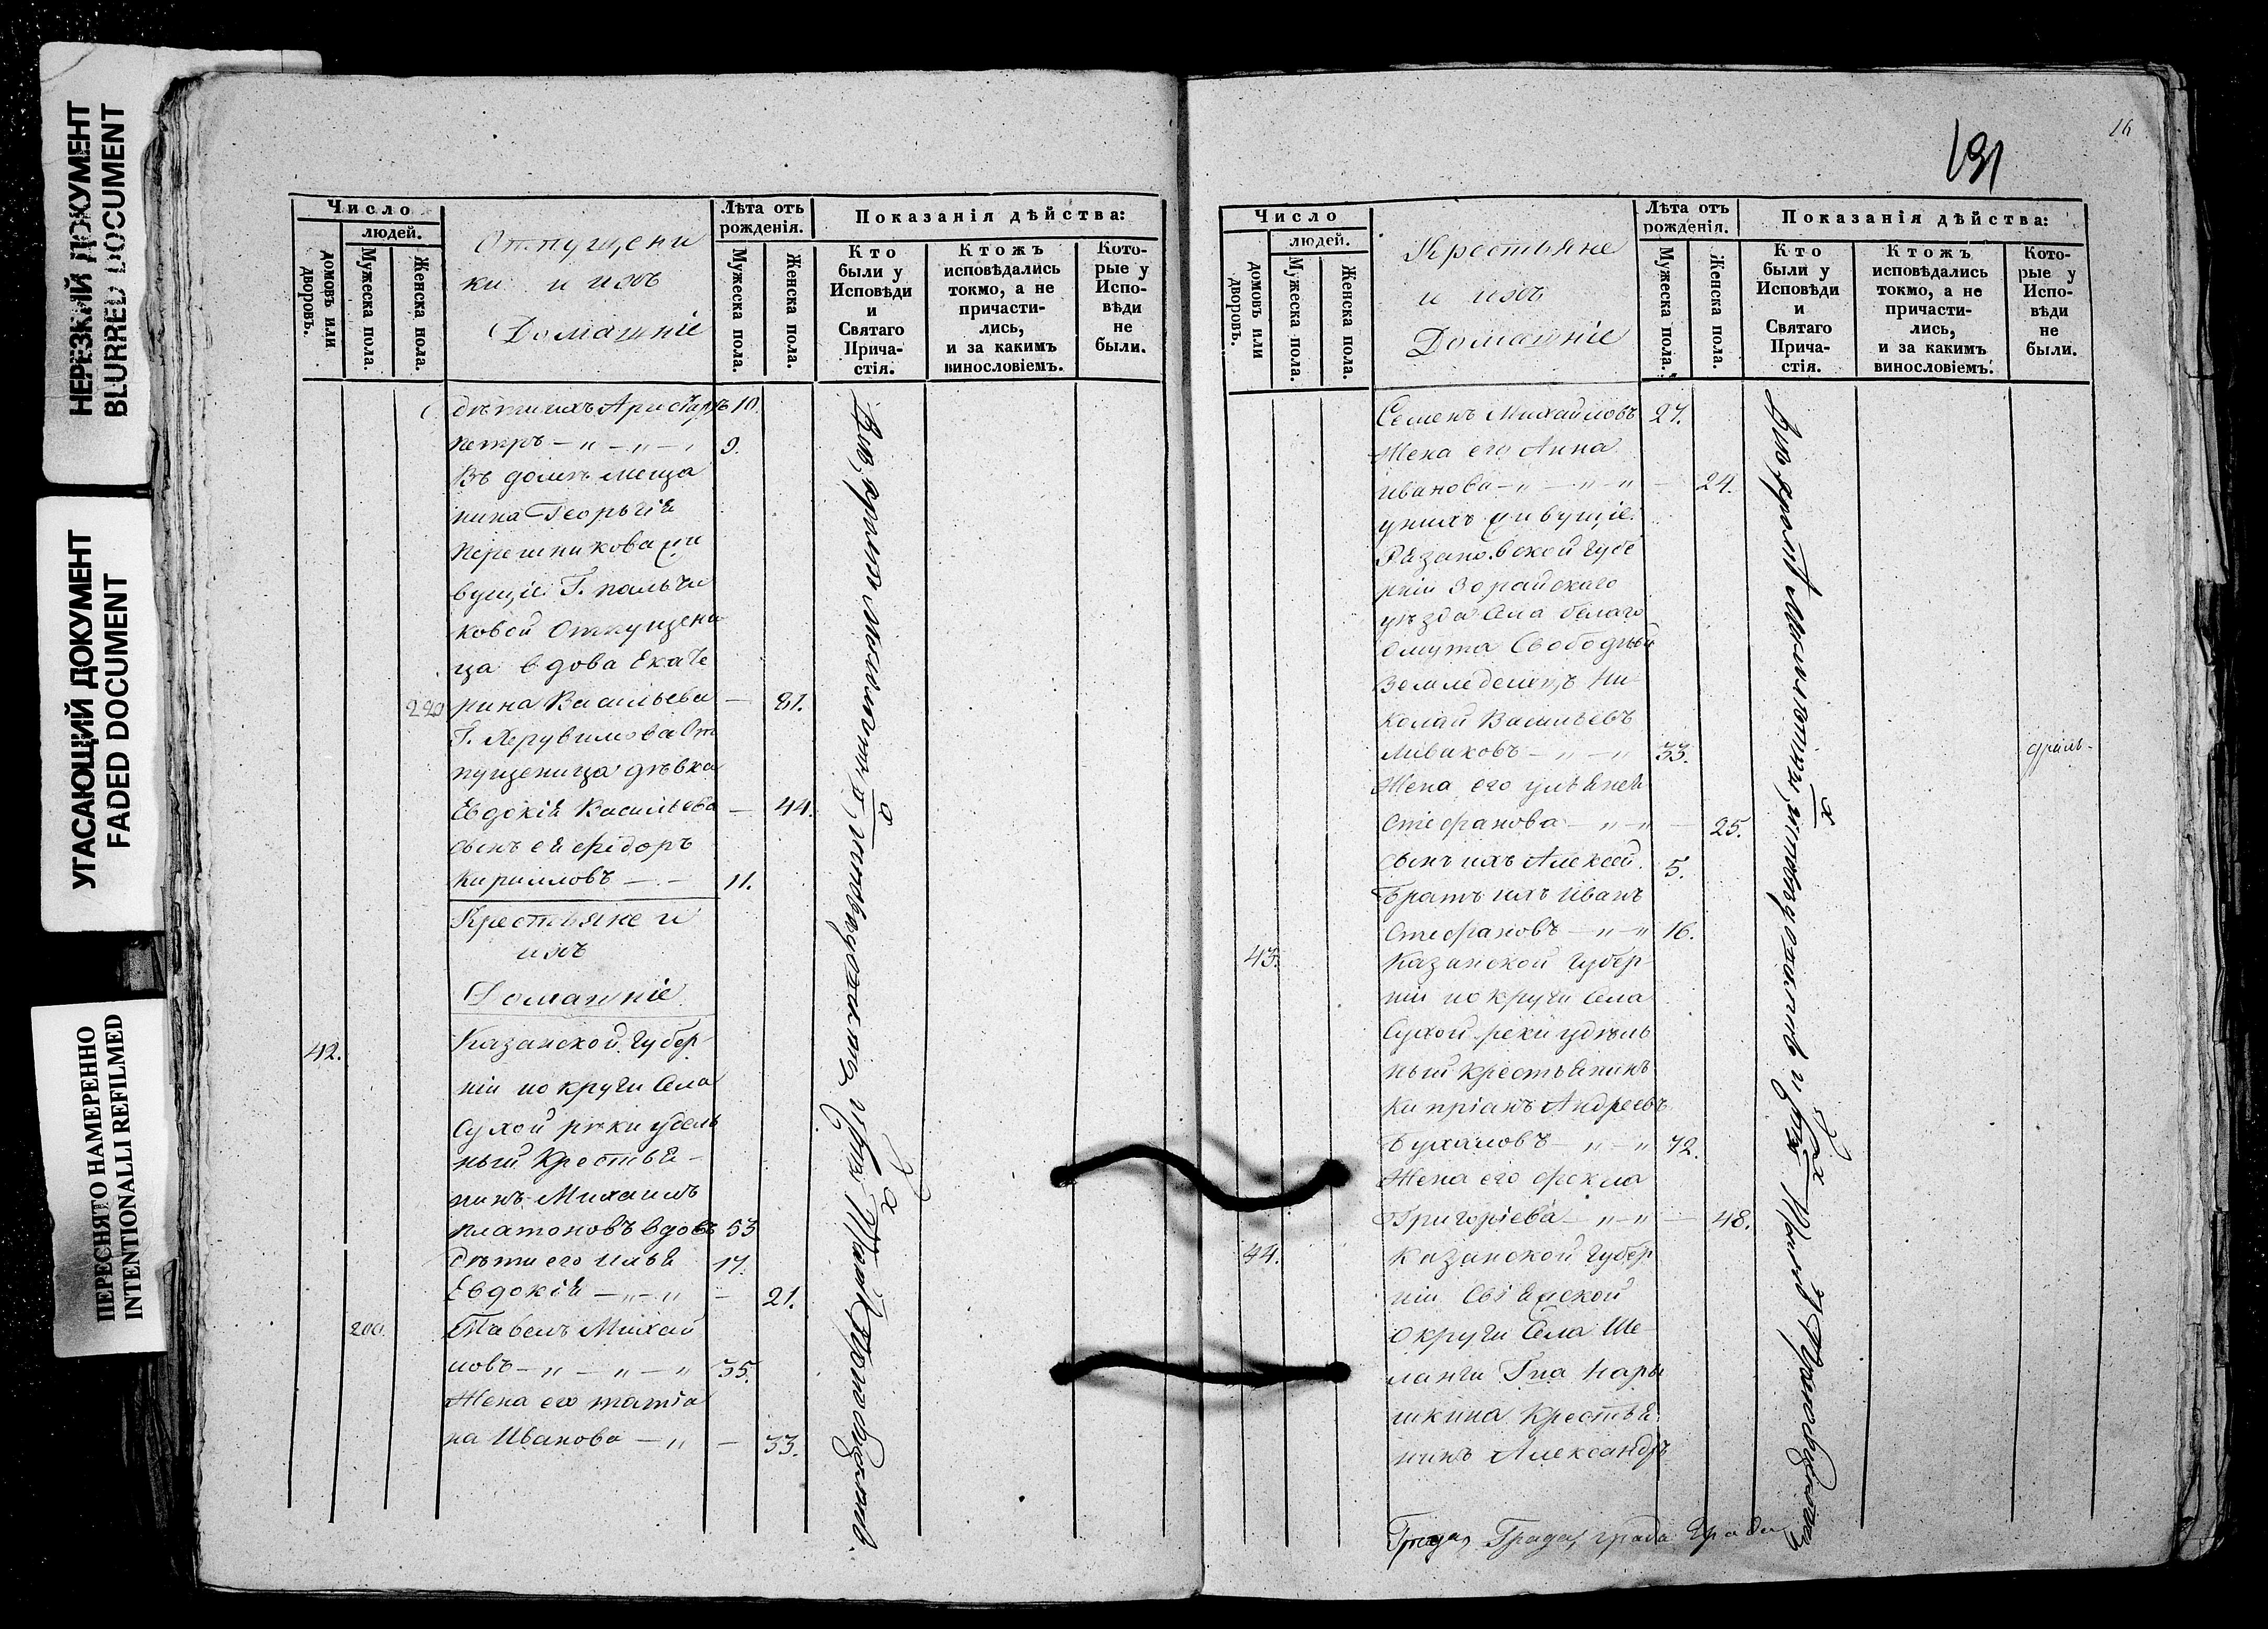 НЕРЕЗКИЙ ДОКУМЕНТ
BLURRED DOCUMENT
УГАСАЮЩИЙ ДОКУМЕНТ
FADED DOCUMENT
ПЕРЕСНЯТО НАМЕРЕННО
INTENTIONALLI REFILMED
Число
людей.
домовъ или дворовъ.
Мужеска пола.
Женска пола.
Отпущени
ки и ихъ
Домашніе
Лѣта отъ рожденія.
Мужеска пола.
Женска пола.
Показанія дѣйства:
Кто были у Исповѣди и Святаго Прича-стія.
Ктожъ исповѣдались токмо, а не причасти-лись, и за какимъ винословіемъ.
Кото-рые у Испо-вѣди не были.
дѣти ихъ Аристархъ 10.
Петръ — „ — „ — „ 9.
Въ домѣ меща
нина Георгія
жи
вущіе Г. пальчи
ковой Отпущени
ца вдова Екате
220 рина Васильева — 81.
Г. Херувимова От
пущеница дѣвка
Евдокія Васильева — 44.
сынъ ея Федоръ
Кириловъ — — 11.
Крестьяне и
ихъ
Домашніе
42. Казанской Губер-
ніи округи Села
Сухой рѣки удель
ный Крестья-
нинъ Михаилъ
платоновъ вдовъ 53
дѣти его Илья 17.
Евдокія — „ — „ — 21.
200. Павелъ Михай
ловъ — „ — „ — „ 35.
Жена его татіа
на Иванова — „ — 33.
131
16
Число
людей.
домовъ или дворовъ.
Мужеска пола.
Женска пола.
Крестьяне
и ихъ
Домашніе
Лѣта отъ рожденія.
Мужеска пола.
Женска пола.
Показанія дѣйства:
Кто были у Исповѣди и Святаго Прича-стія.
Ктожъ исповѣдались токмо, а не причасти-лись, и за какимъ винословіемъ.
Кото-рые у Испо-вѣди не были.
Семенъ Михайловъ 27.
Жена его Анна
Иванова — „ — „ — „ — 24.
у нихъ живущіе
Рязановской губе
рніи Зорайскаго
уѣзда Села белаго
омута Свободный
Земледелецъ Ни
колай Васильевъ
Ливаковъ — „ — „ 33.
Жена его
Стефанова — „ — „ — 25.
сынъ ихъ Алексей 5.
Братъ ихъ Иванъ
Стефановъ — „ — „ 16.
43. Казанской Губер-
ніи округи Села
Сухой реки удѣль
ный крестьянинъ
Кипріанъ Андреевъ
— „ — „ 72.
Жена его фекла
Григоріева — „ — „ — 48.
44. Казанской Губер
ніи Свіяжской
округи Села Ше-
ланги Гна Нары
шкина Крестья
нинъ Александръ
Града Града града града